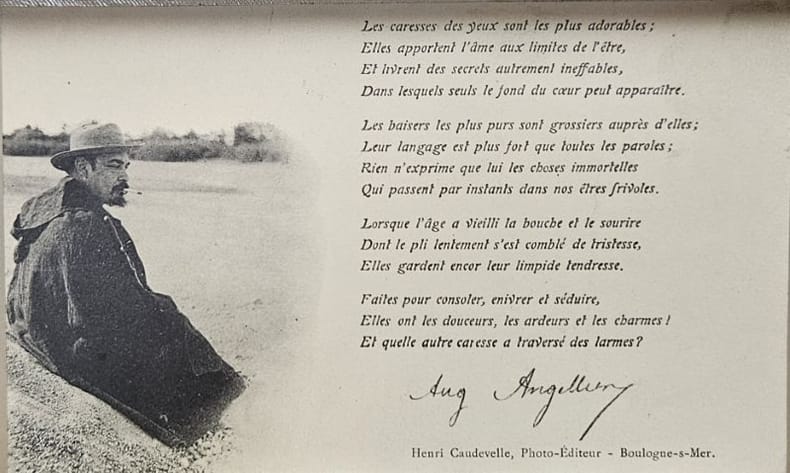 Les caresses des yeux sont les plus adorables ;
Elles apportent l'âme aux limites de l'être,
Et livrent des secrets autrement ineffables,
Dans lesquels seuls le fond du cœur peut apparaître.
Les baisers les plus purs sont grossiers auprès d'elles ;
Leur langage est plus fort que toutes les paroles ;
Rien n'exprime que lui les choses immortelles
Qui passent par instants dans nos êtres frivoles.
Lorsque l'âge a vieilli la bouche et le sourire
Dont le pli lentement s'est comblé de tristesse,
Elles gardent encor leur limpide tendresse.
Faites pour consoler, enivrer et séduire,
Elles ont les douceurs, les ardeurs et les charmes !
Et quelle autre caresse a traversé des larmes ?
Aug Angellier
Henri Caudevelle, Photo-Éditeur - Boulogne-s-Mer.